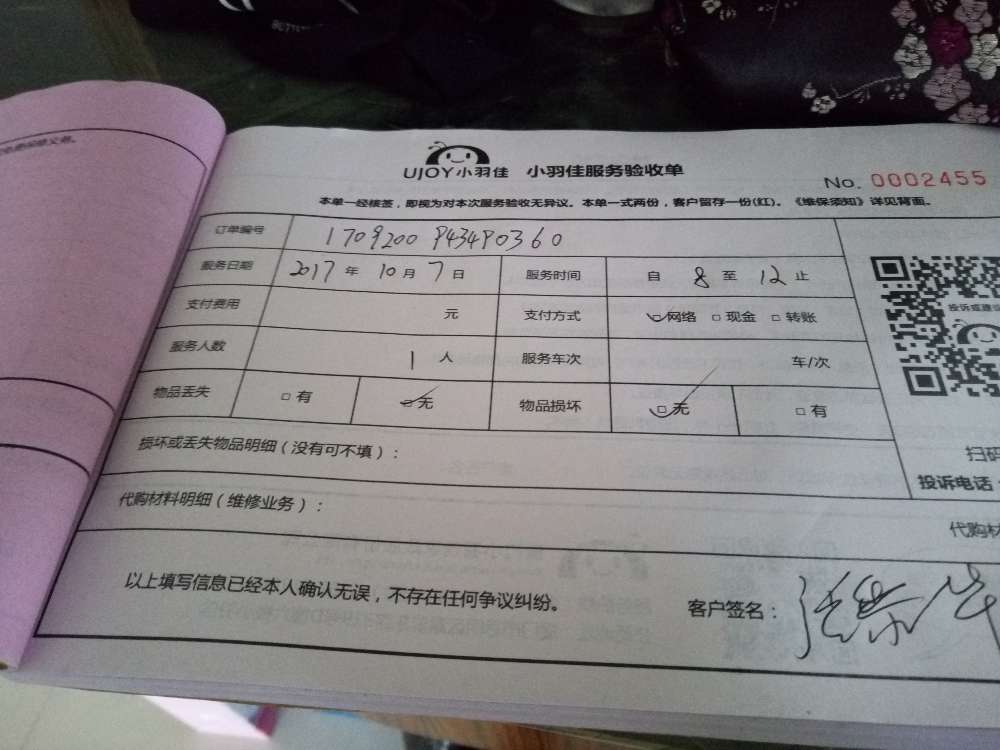 UJOY小羽佳 小羽佳服务验收单
No. 0002455
本单一经核签，即视为对本次服务验收无异议。本单一式两份，客户留存一份(红)。《维保须知》详见背面。
订单编号 1709200 P434P0360
服务日期 2017 年 10 月 7 日 服务时间 自 8 至 12 止
支付费用 元 支付方式 网络 □ 现金 □ 转账
服务人数 1 人 服务车次 车/次
物品丢失 □ 有 □ 无 物品损坏 □ 无 □ 有
投诉或建议
损坏或丢失物品明细（没有可不填）：
扫码
投诉电话
代购材料明细（维修业务）：
代购材
以上填写信息已经本人确认无误，不存在任何争议纠纷。 客户签名：